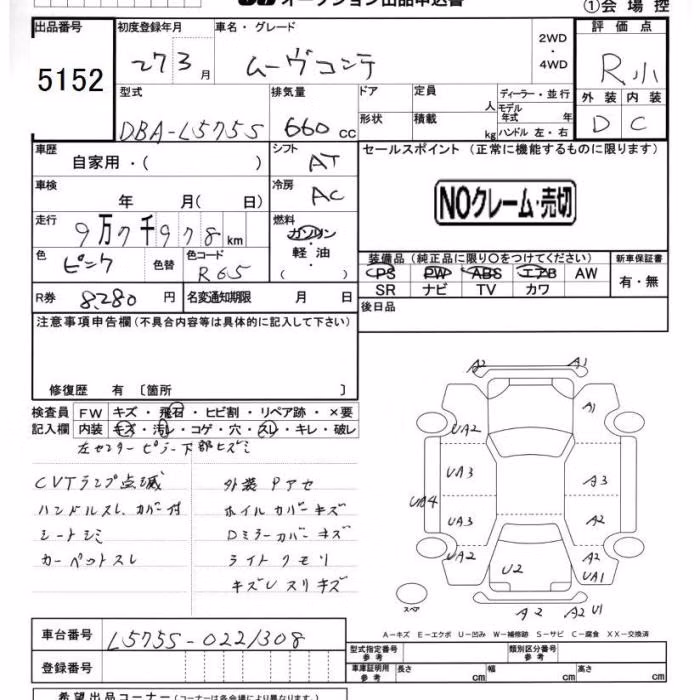 オークション出品申込書 ①会場控
出品番号 初度登録年月 車名・グレード 評価点
5152 27 3月 ムーヴコンテ 2WD・4WD R小
型式 排気量 ドア 定員 人 ディーラー・並行 外装 内装
DBA-L575S 660cc 形状 積載 kg モデル年式 年 ハンドル 左・右 D C
車歴 自家用・( ) シフト AT セールスポイント (正常に機能するものに限ります)
車検 年 月( 日) 冷房 AC NOクレーム・売切
走行 9万7千978km 燃料 ガソリン・軽油・( )
色 ピンク 色替 色コード R65 装備品(純正品に限り○をつけてください) 新車保証書
PS PW ABS エアB AW 有・無
SR ナビ TV カワ
R券 8,280円 名変通知期限 月 日 後日品
注意事項申告欄(不具合内容等は具体的に記入して下さい)
修復歴 有 〔箇所 〕
検査員 FW キズ・飛石・ヒビ割・リペア跡・×要
記入欄 内装 キズ・汚レ・コゲ・穴・スレ・キレ・破レ
左センターピラー下部ヒズミ
CVTランプ点滅 外装 Pアセ
ハンドルスレ、カバー付 ホイルカバーキズ
シートシミ Dミラーカバーキズ
カーペットスレ ライトクモリ
キズUスリキズ
A2 A1
A1
UA2
UA3 A3
UA4
UA3 A2
UA2 A2
U2 UA1
スペア A2 A2 U1
A-キズ E-エクボ U-凹み W-補修跡 S-サビ C-腐食 XX-交換済
車台番号 L575S-0221308 型式指定番号 参考 類別区分番号 参考
登録番号 車庫証明用 参考 長さ cm 幅 cm 高さ cm
希望出品コーナー(コーナーは各会場により異なります。)